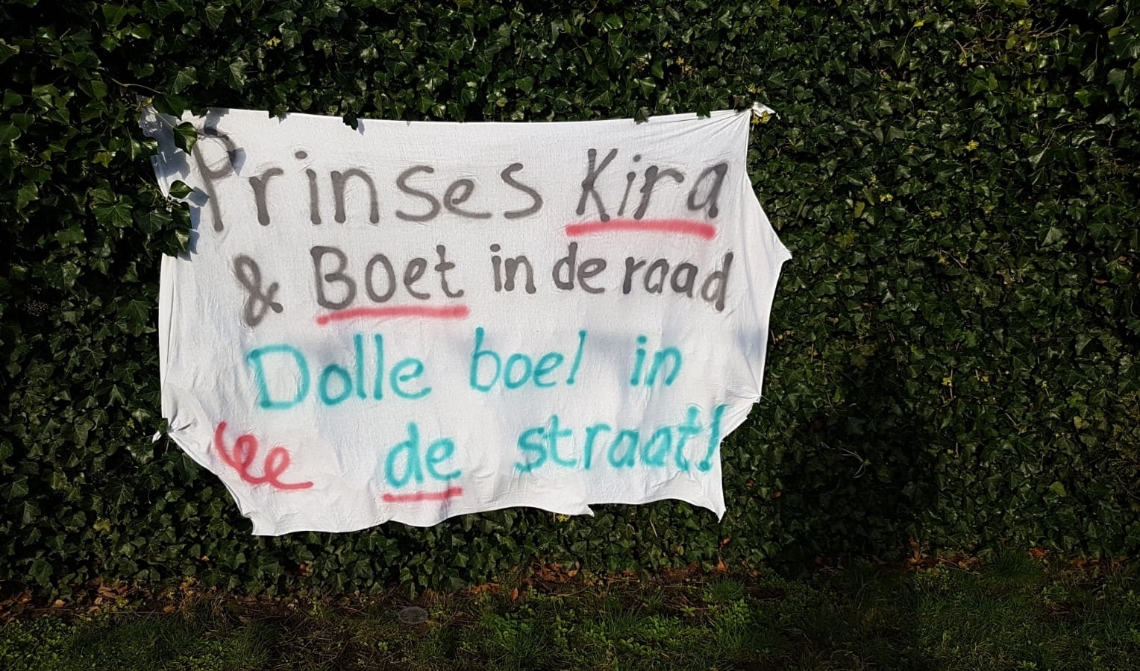 Prinses Kira
& Boet in de raad
Dolle boel in
de straat!